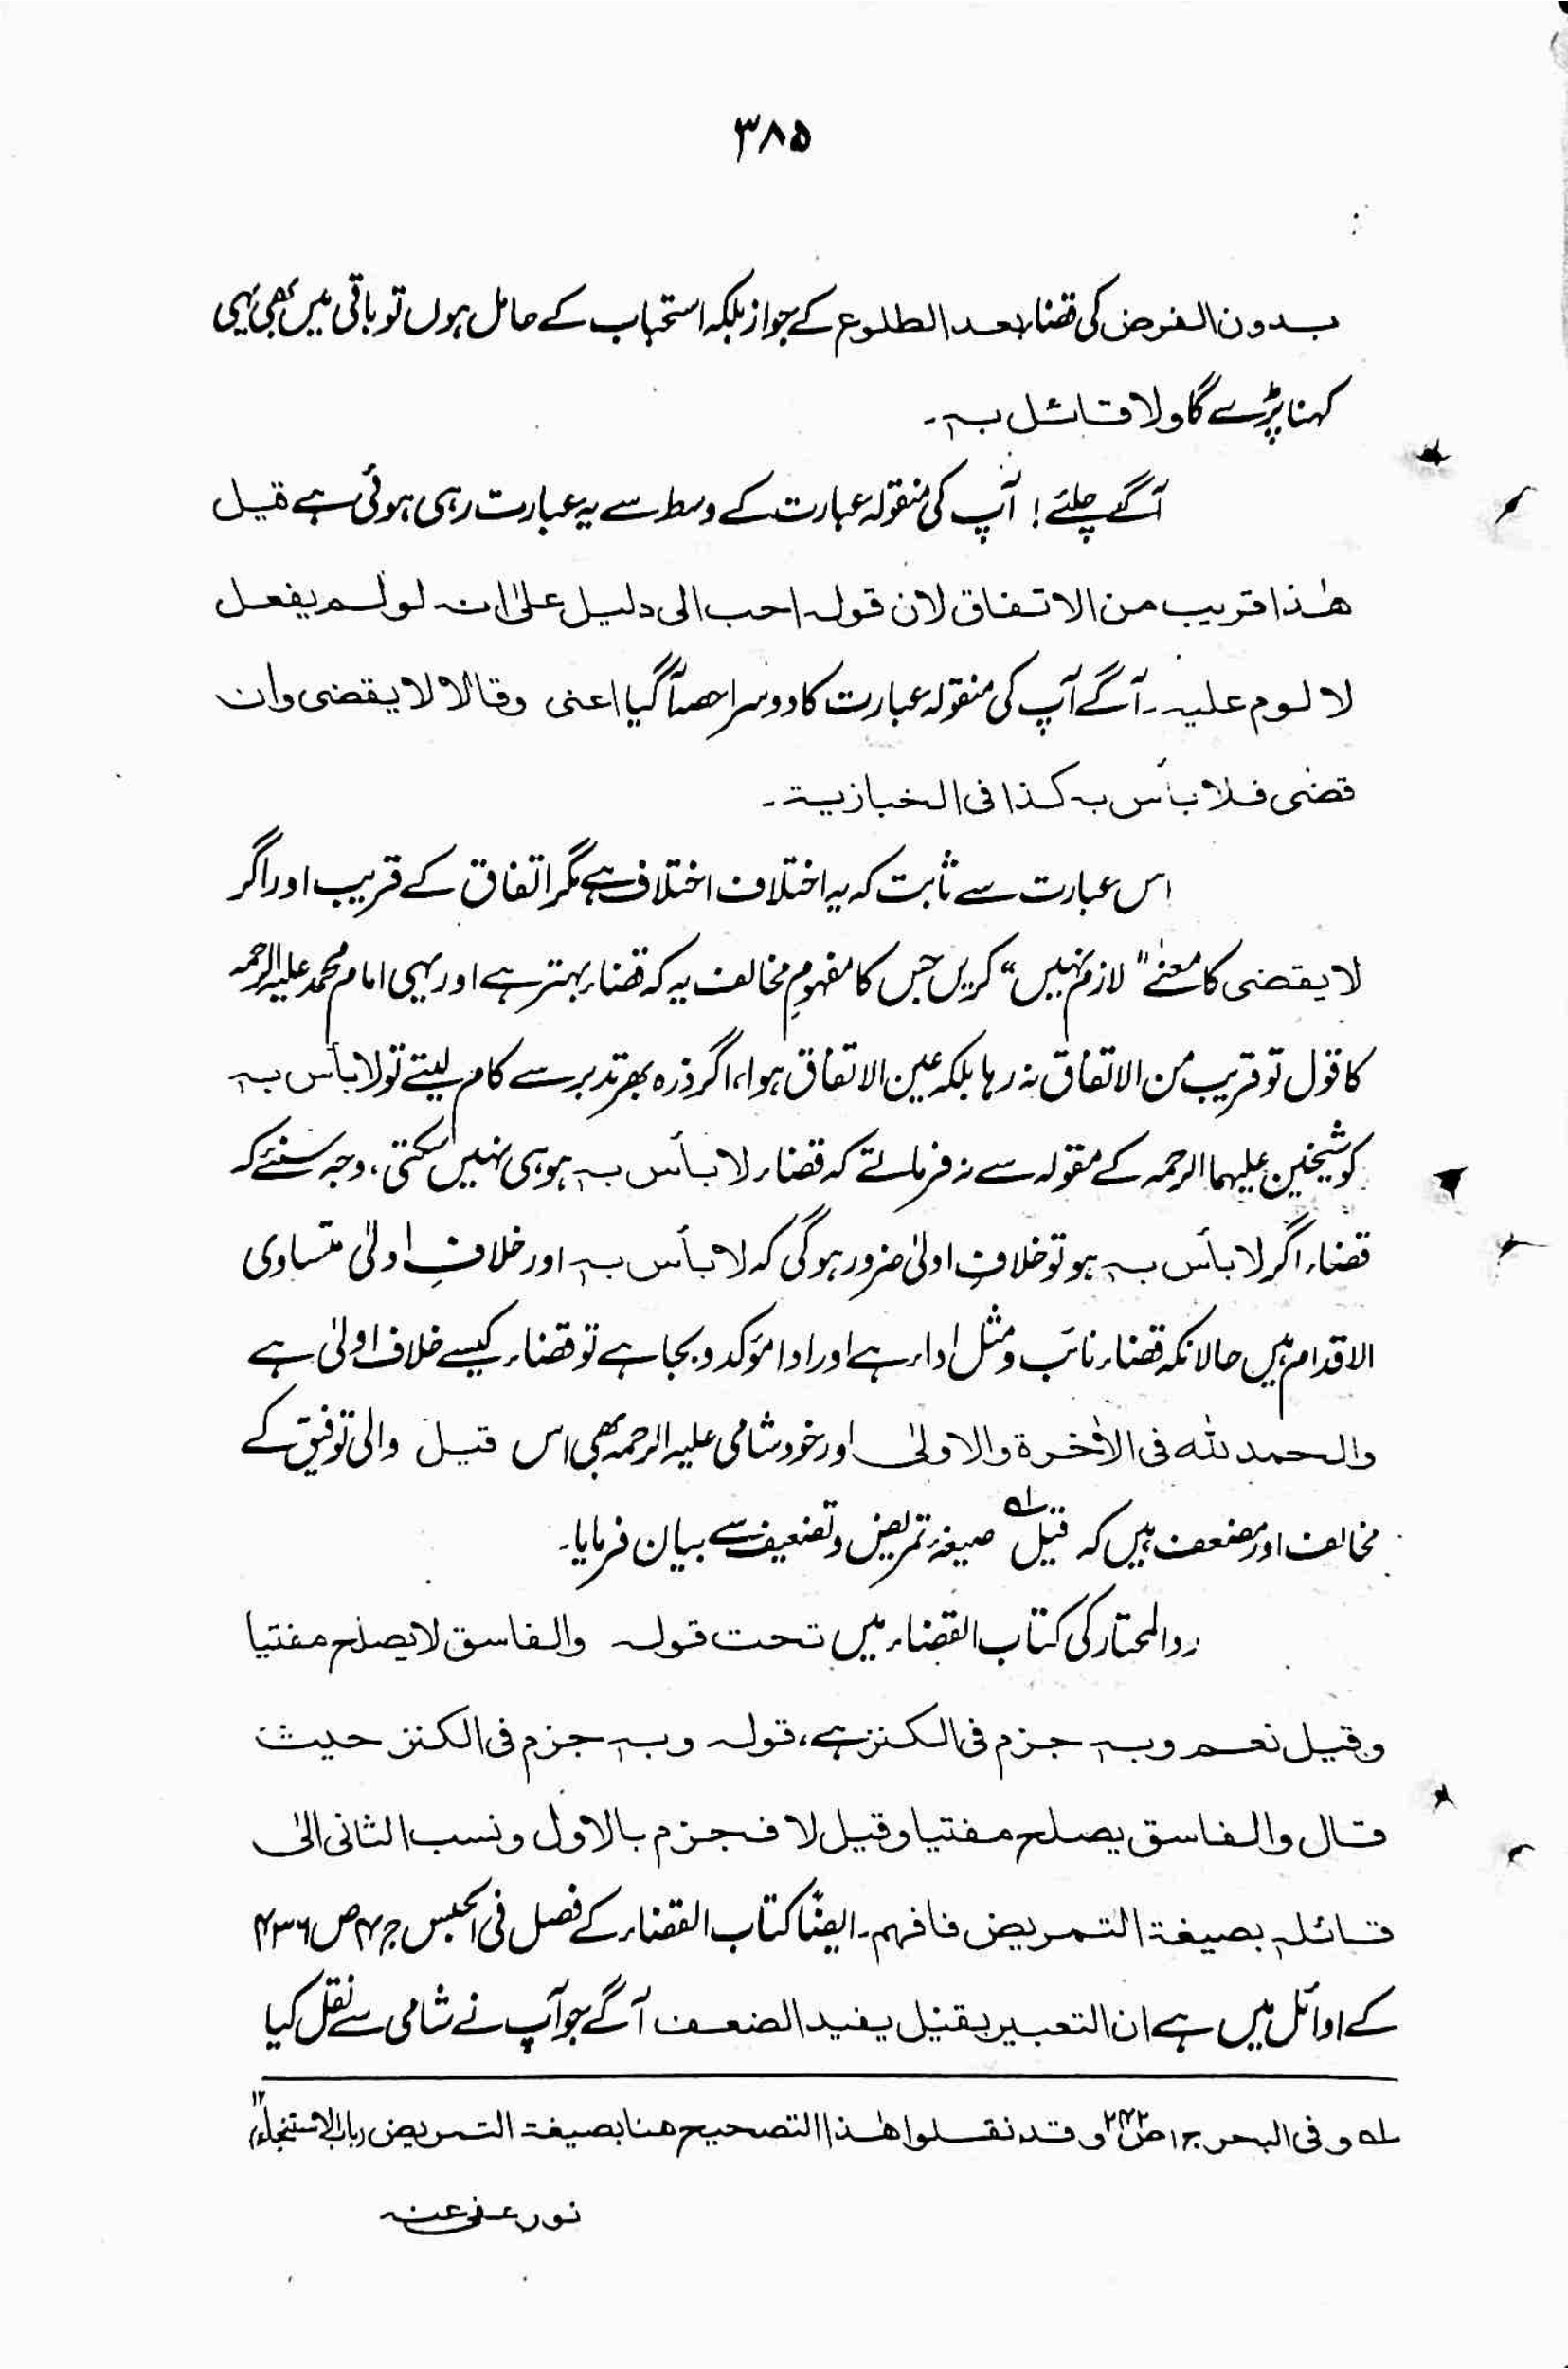 ۳۸۵
بدون الفرض کی قضاء بعد الطلوع کے جواز بلکہ استحباب کے حامل ہوں تو باقی میں بھی یہی
کہنا پڑے گا ولا قائل بہ۔
آگے چلئے! آپ کی منقولہ عبارت کے وسط سے یہ عبارت رہی ہوئی ہے قیل
ھٰذا قریب من الاتفاق لان قولہ احب الی دلیل علیٰ انہ لو لم یفعل
لا لوم علیہ۔ آگے آپ کی منقولہ عبارت کا دوسرا حصہ آگیا اعنی وقالا لا یقضی وان
قضٰی فلا بأس بہ کذا فی الخبازیۃ۔
اس عبارت سے ثابت کہ یہ اختلاف اختلاف ہے مگر اتفاق کے قریب اور اگر
لا یقضی کا معنٰے "لازم نہیں" کریں جس کا مفہومِ مخالف یہ کہ قضاء بہتر ہے اور یہی امام محمد علیہ الرحمہ
کا قول تو قریب من الاتفاق نہ رہا بلکہ عین الاتفاق ہوا، اگر ذرہ بھر تدبر سے کام لیتے تو لا بأس بہ
کو شیخین علیہما الرحمہ کے مقولہ سے نہ فرماتے کہ قضاء لا بأس بہ ہو ہی نہیں سکتی، وجہ سنئے کہ
قضاء اگر لا بأس بہ ہو تو خلافِ اولیٰ ضرور ہوگی کہ لا بأس بہ اور خلافِ اولیٰ متساوی
الاقدام ہیں حالانکہ قضاء نائب و مثل اداء ہے اور ادا مؤکد و بجا ہے تو قضاء کیسے خلاف اولیٰ ہے
والحمد للہ فی الاٰخرۃ والاولیٰ اور خود شامی علیہ الرحمہ بھی اس قیل والی توفیق کے
مخالف اور مضعف ہیں کہ قیل ؂۱ صیغۂ تمریض و تضعیف سے بیان فرمایا۔
رد المحتار کی کتاب القضاء میں تحت قولہ والفاسق لا یصلح مفتیا
وقیل نعم وبہ جزم فی الکنز ہے، قولہ وبہ جزم فی الکنز حیث
قال والفاسق یصلح مفتیا وقیل لا فجزم بالاول ونسب الثانی الیٰ
قائلہ بصیغۃ التمریض فافہم۔ ایضًا کتاب القضاء کے فصل فی الحبس ج ۴ ص ۴۳۶
کے اوائل میں ہے ان التعبیر بقیل یفید الضعف آگے جو آپ نے شامی سے نقل کیا
؂۱ وفی البحر ج ۱ ص ۲۴۲ وقد نقلوا ھٰذا التصحیح ھنا بصیغۃ التمریض (باب الاستنجاء) ۱۲
نور عفی عنہ